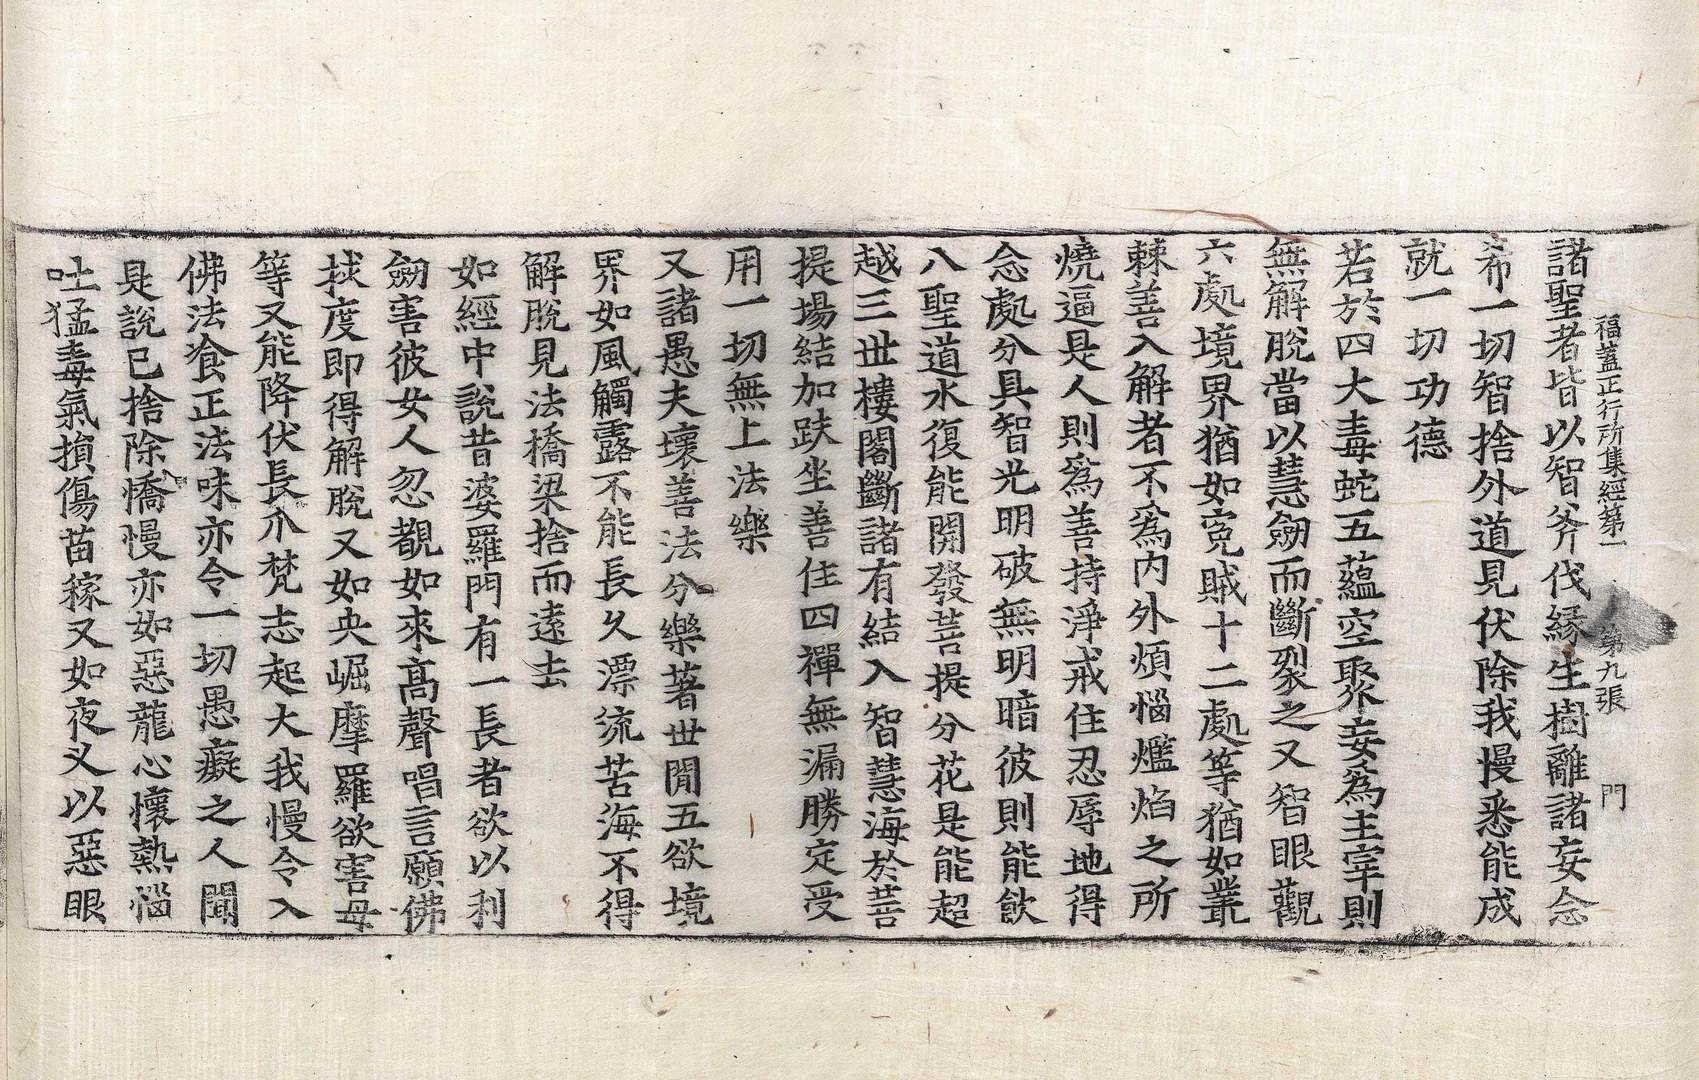 福蓋正行所集經第一　第九張　門
諸聖者皆以智斧伐緣生樹離諸妄念
希一切智捨外道見伏除我慢悉能成
就一切功德
若於四大毒蛇五蘊空聚妄為主宰則
無解脫當以慧劒而斷裂之又智眼觀
六處境界猶如寃賊十二處等猶如叢
棘善入解者不為內外煩惱爁焰之所
燒逼是人則為善持淨戒住忍辱地得
念處分具智光明破無明暗彼則能飲
八聖道水復能開發菩提分花是能超
越三世樓閣斷諸有結入智慧海於菩
提場結加趺坐善住四禪無漏勝定受
用一切無上法樂
又諸愚夫壞善法分樂著世閒五欲境
界如風觸露不能長久漂流苦海不得
解脫見法橋梁捨而遠去
如經中說昔婆羅門有一長者欲以利
劒害彼女人忽覩如來高聲唱言願佛
救度即得解脫又如央崛摩羅欲害母
等又能降伏長爪梵志起大我慢令入
佛法飡正法味亦令一切愚癡之人聞
是說已捨除憍慢亦如惡龍心懷熱惱
吐猛毒氣損傷苗稼又如夜叉以惡眼